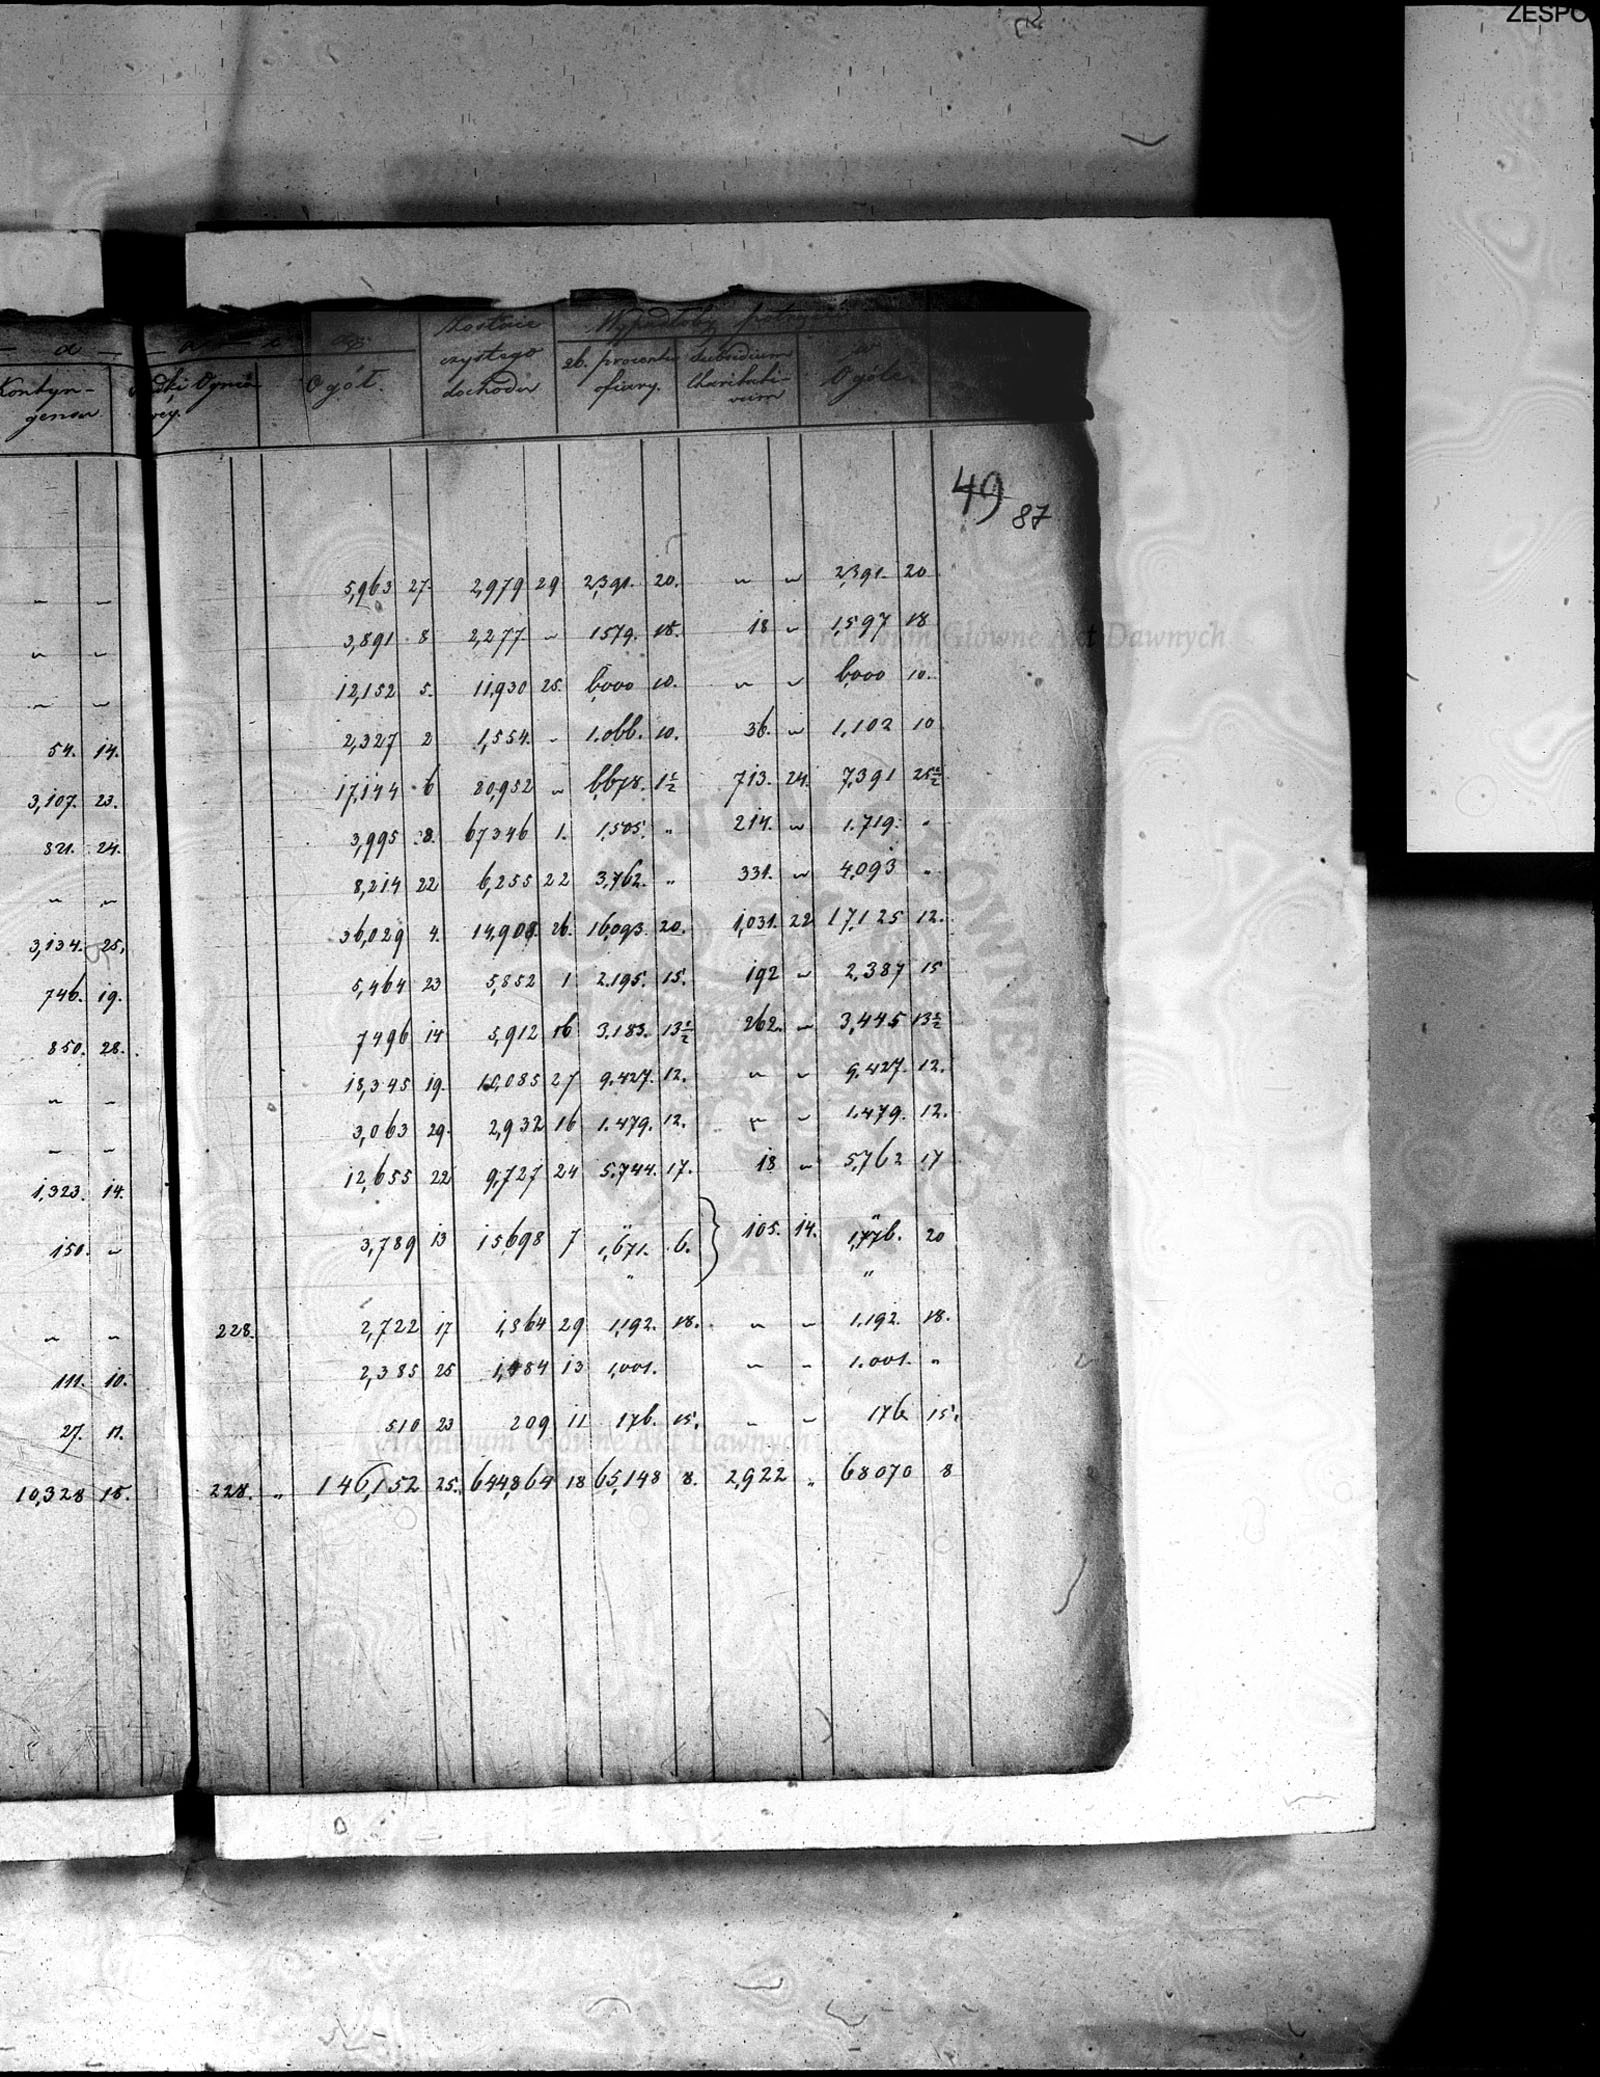 ZESPO
Zostaie Wypadłoby
Ogół. czystego dochodu 26. procentu ofiary. Subsidium Charitativum Ogóle.
Kontyn-
gensu
49
87
5,963 27. 2,979 29 2,391. 20. " " 2,391. 20
" " 3,891 8 2,277 " 1579. 18. 18 " 1,597 18
" " 12,152 5. 11,930 25. 6,000 10. " " 6,000 10.
54. 14. 2,327 2 1,554. " 1.066. 10. 36. " 1,102 10
3,107. 23. 17,144 6 20,952 " 6,678. 1½ 713. 24. 7,391 25½
821. 24. 3,995 8. 67346 1. 1,505. " 214. " 1.719. "
" " 8,214 22 6,255 22 3,762. " 331. " 4,093 "
3,134. 25. 36,029 4. 14,908. 26. 16,093. 20. 1,031. 22 17,125 12.
746. 19. 5,464 23 5,852 1 2.195. 15. 192 " 2,387 15
850. 28. 7496 14 5,912 16 3.183. 13½ 262. " 3,445 13½
" " 18,345 19. 10,085 27 9.427. 12. " " 9.427. 12.
" " 3,063 29. 2,932 16 1.479. 12. " " 1.479. 12.
1,323. 14. 12,655 22 9,727 24 5.744. 17. 18 " 5,762 17
150. " 3,789 13 15698 7 1,671. 6. } 105. 14. 1,776. 20
" " 228. 2,722 17 1,864 29 1,192. 18. " " 1.192. 18.
111. 10. 2,385 25 1,484 13 1,001. " " 1.001. "
27. 11. 510 23 209 11 176. 15. " " 176 15.
10,328 18. 228. " 146,152 25. 644,864 18 65,148 8. 2,922 " 68070 8
Archiwum Główne Akt Dawnych
Archiwum Główne Akt Dawnych